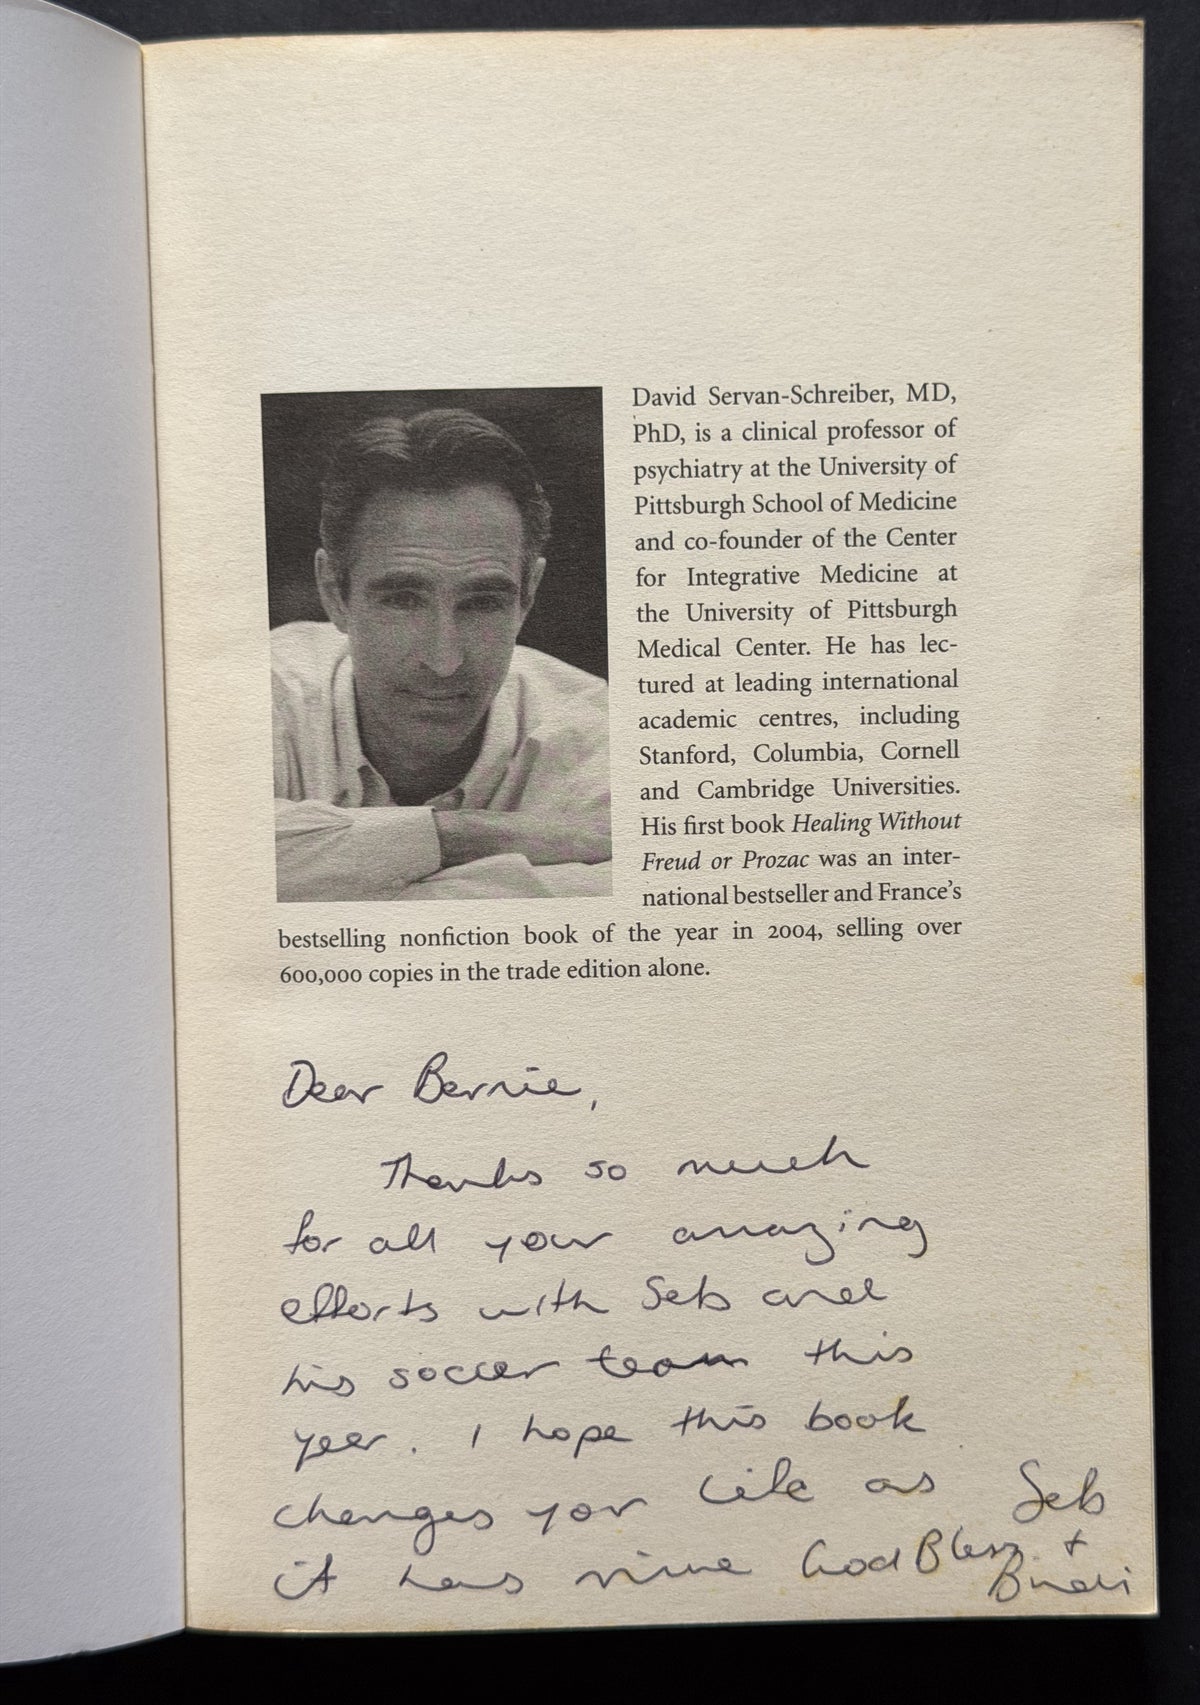 David Servan-Schreiber, MD,
PhD, is a clinical professor of
psychiatry at the University of
Pittsburgh School of Medicine
and co-founder of the Center
for Integrative Medicine at
the University of Pittsburgh
Medical Center. He has lec-
tured at leading international
academic centres, including
Stanford, Columbia, Cornell
and Cambridge Universities.
His first book Healing Without
Freud or Prozac was an inter-
national bestseller and France's
bestselling nonfiction book of the year in 2004, selling over
600,000 copies in the trade edition alone.
Dear Bernie,
Thanks so much
for all your amazing
efforts with Seb and
his soccer team this
year. I hope this book
changes your life as
it has mine God Bless.
Seb
+